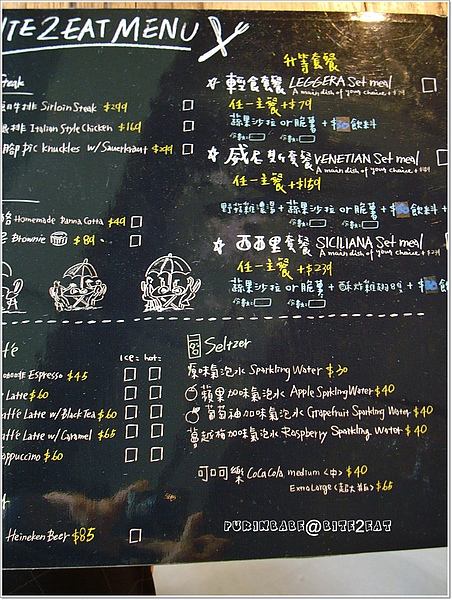 ITE2EAT MENU
升等套餐
輕食套餐 LEGGERA Set meal
A main dish of your choice + $79
任一主餐 + $79
蔬果沙拉 or 脆薯 + $30 飲料
威尼斯套餐 VENETIAN Set meal
A main dish of your choice + $159
任一主餐 + $159
野菇雞濃湯 + 蔬果沙拉 or 脆薯 + $30 飲料 +
西西里套餐 SICILIANA Set meal
A main dish of your choice + $239
任一主餐 + $239
蔬果沙拉 or 脆薯 + 酥炸雞翅
Steak
排 Sirloin Steak $299
排 Italian Style Chicken $169
腳 Pic Knuckles w/ Sauerkraut $299
Homemade Panna Cotta $49
Brownie $89
ice: hot:
啡 Espresso $45
Latte $60
Caffé Latte w/ Black Tea $60
affé Latte w/ Caramel $65
appuccino $60
Heineken Beer $85
Seltzer
原味氣泡水 Sparkling Water $30
蘋果加味氣泡水 Apple Sparkling Water $40
葡萄柚加味氣泡水 Grapefruit Sparkling Water $40
蔓越莓加味氣泡水 Raspberry Sparkling Water $40
可口可樂 CocaCola medium <中> $40
Extra Large <超大瓶> $65
PURINBABE@BITE2EAT